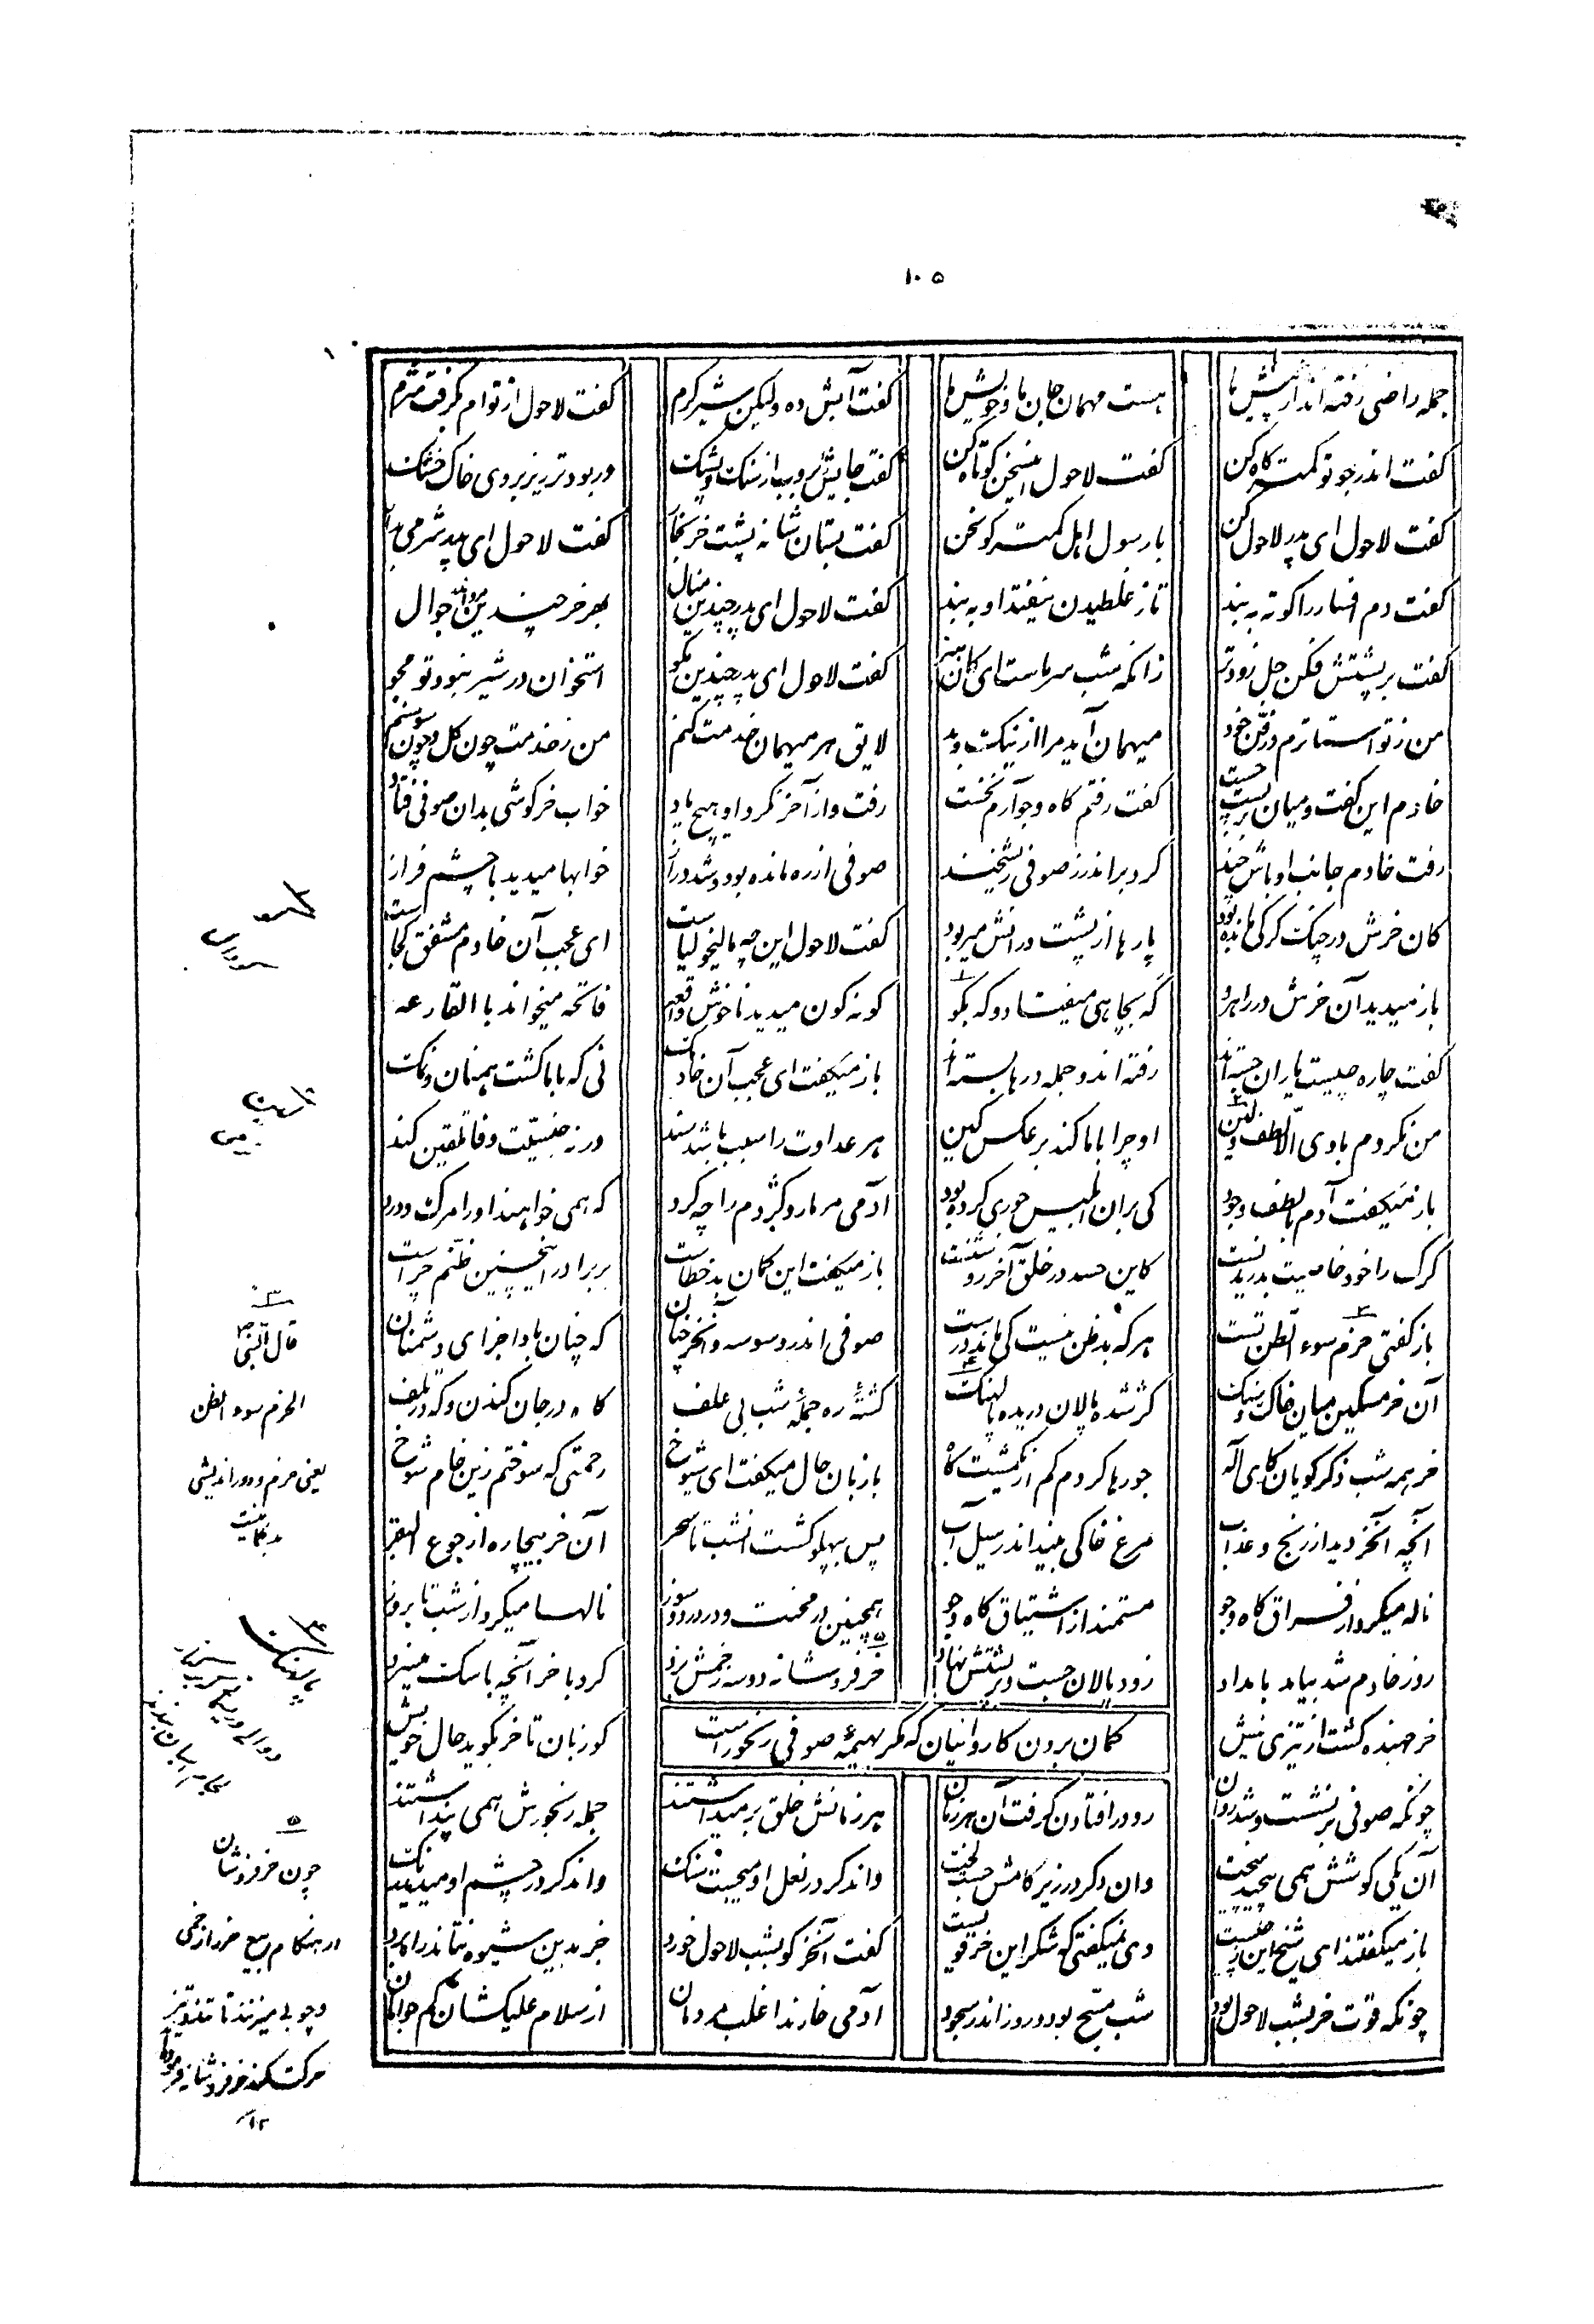 ۱۰۵
جمله راضی رفته اند از پیش ما هست مهمان جان ما و خویش ما گفت آبش ده ولیکن شیر گرم گفت لاحول از توام بگرفت شرم
گفت اندر جو تو کمتر کاه کن گفت لاحول این سخن کوتاه کن گفت جایش را بروب از سنگ و پشک ور بود تر ریز بر وی خاک خشک
گفت لاحول ای پدر لاحول کن با رسول اهل کمتر گو سخن گفت بستان شانه پشت خر بخار گفت لاحول ای پدر شرمی بدار
گفت دم افسار را کوته به بند تا ز غلطیدن نیفتد او به بند گفت لاحول ای پدر چندین منال بهر خر چندین مرو اندر جوال
گفت بر پشتش فکن جل زودتر زانکه شب سرماست ای کان هنر گفت لاحول ای پدر چندین مگو استخوان در شیر نبود تو مجو
من ز تو استاترم در فن خود میهمان آید مرا از نیک و بد لایق هر میهمان خدمت کنم من ز خدمت چون گل و چون سوسنم
خادم این گفت و میان بربست چست گفت رفتم کاه و جو آرم نخست رفت و از آخر نکرد او هیچ یاد خواب خرگوشی بدان صوفی فتاد
رفت خادم جانب اوباش چند کرد بر اندرز صوفی ریشخند صوفی از ره مانده بود و شد دراز خوابها میدید با چشم فراز
کان خرش در چنگ گرگی مانده بود پارها از پشت و رانش میربود گفت لاحول این چه مالیخولیاست ای عجب آن خادم مشفق کجاست
باز میدید آن خرش در راهرو گه بچاهی میفتاد و گه بگو گونه گون میدید ناخوش واقعه فاتحه میخواند با القارعه
گفت چاره چیست یاران جسته اند رفته اند و جمله درها بسته اند باز میگفت ای عجب آن خادمک نی که با ما گشت همنان و نمک
من نکردم با وی الا لطف و لین او چرا با ما کند بر عکس کین هر عداوت را سبب باید سند ورنه جنسیت وفا تلقین کند
باز میگفت آدم با لطف و جود کی بران ابلیس جوری کرده بود آدمی مر مار و کژدم را چه کرد که همی خواهند او را مرگ و درد
گرگ را خود خاصیت بدریدنست کاین حسد در خلق آخر روشنست باز میگفت این گمان بد خطاست بر برادر اینچنین ظنم چراست
باز گفتی حزم سوء الظن تست هر که بدظن نیست کی ماند درست صوفی اندر وسوسه و آنخر چنان که چنان بادا جزای دشمنان
آن خر مسکین میان خاک و سنگ کژ شده پالان دریده پالهنگ کشتهٔ ره جملهٔ شب بی علف گاه در جان کندن و گه در تلف
خر همه شب ذکر گویان کای اله جو رها کردم کم از یکمشت کاه با زبان حال میگفت ای شیوخ رحمتی که سوختم زین خام شوخ
آنچه آنخر دید از رنج و عذاب مرغ خاکی بیند اندر سیل آب پس بپهلو گشت آنشب تا سحر آن خر بیچاره از جوع البقر
ناله میکرد از فراق کاه و جو مستمند از اشتیاق کاه و جو همچنین در محنت و در درد و سوز نالها میکرد از شب تا بروز
روز خادم شد بیامد بامداد زود پالان جست و بر پشتش نهاد خر فروشانه دو سه زخمش بزد کرد با خر آنچه با سگ میسزد
خر جهنده گشت از تیزی نیش کو زبان تا خر بگوید حال خویش
گمان بردن کاروانیان که مگر بهیمهٔ صوفی رنجور است
چونکه صوفی برنشست و شد روان رو در افتادن گرفت آن هر زمان هر زمانش خلق بر میداشتند جمله رنجورش همی پنداشتند
آن یکی گوشش همی پیچید سخت وان دگر در زیر کامش جست لخت واندگر در نعل او میجست سنگ واندگر در چشم او میدید زنگ
باز میگفتند ای شیخ این ز چیست دی نمیگفتی که شکر این خر قویست گفت آنخر کو بشب لاحول خورد جز بدین شیوه نتاند راه برد
چونکه قوت خر بشب لاحول بود شب مسبح بود و روز اندر سجود آدمی خوارند اغلب مردمان از سلام علیکشان کم جو امان
۳
قال النبی ص
الحزم سوء الظن
یعنی حزم و دوراندیشی
بدگمانیست
۴
پالهنگ
۵
چون خر فروشان
در هنگام بیع خر را زخمی
و چوبی میزنند تا تند و تیز
حرکت کند
۱۲